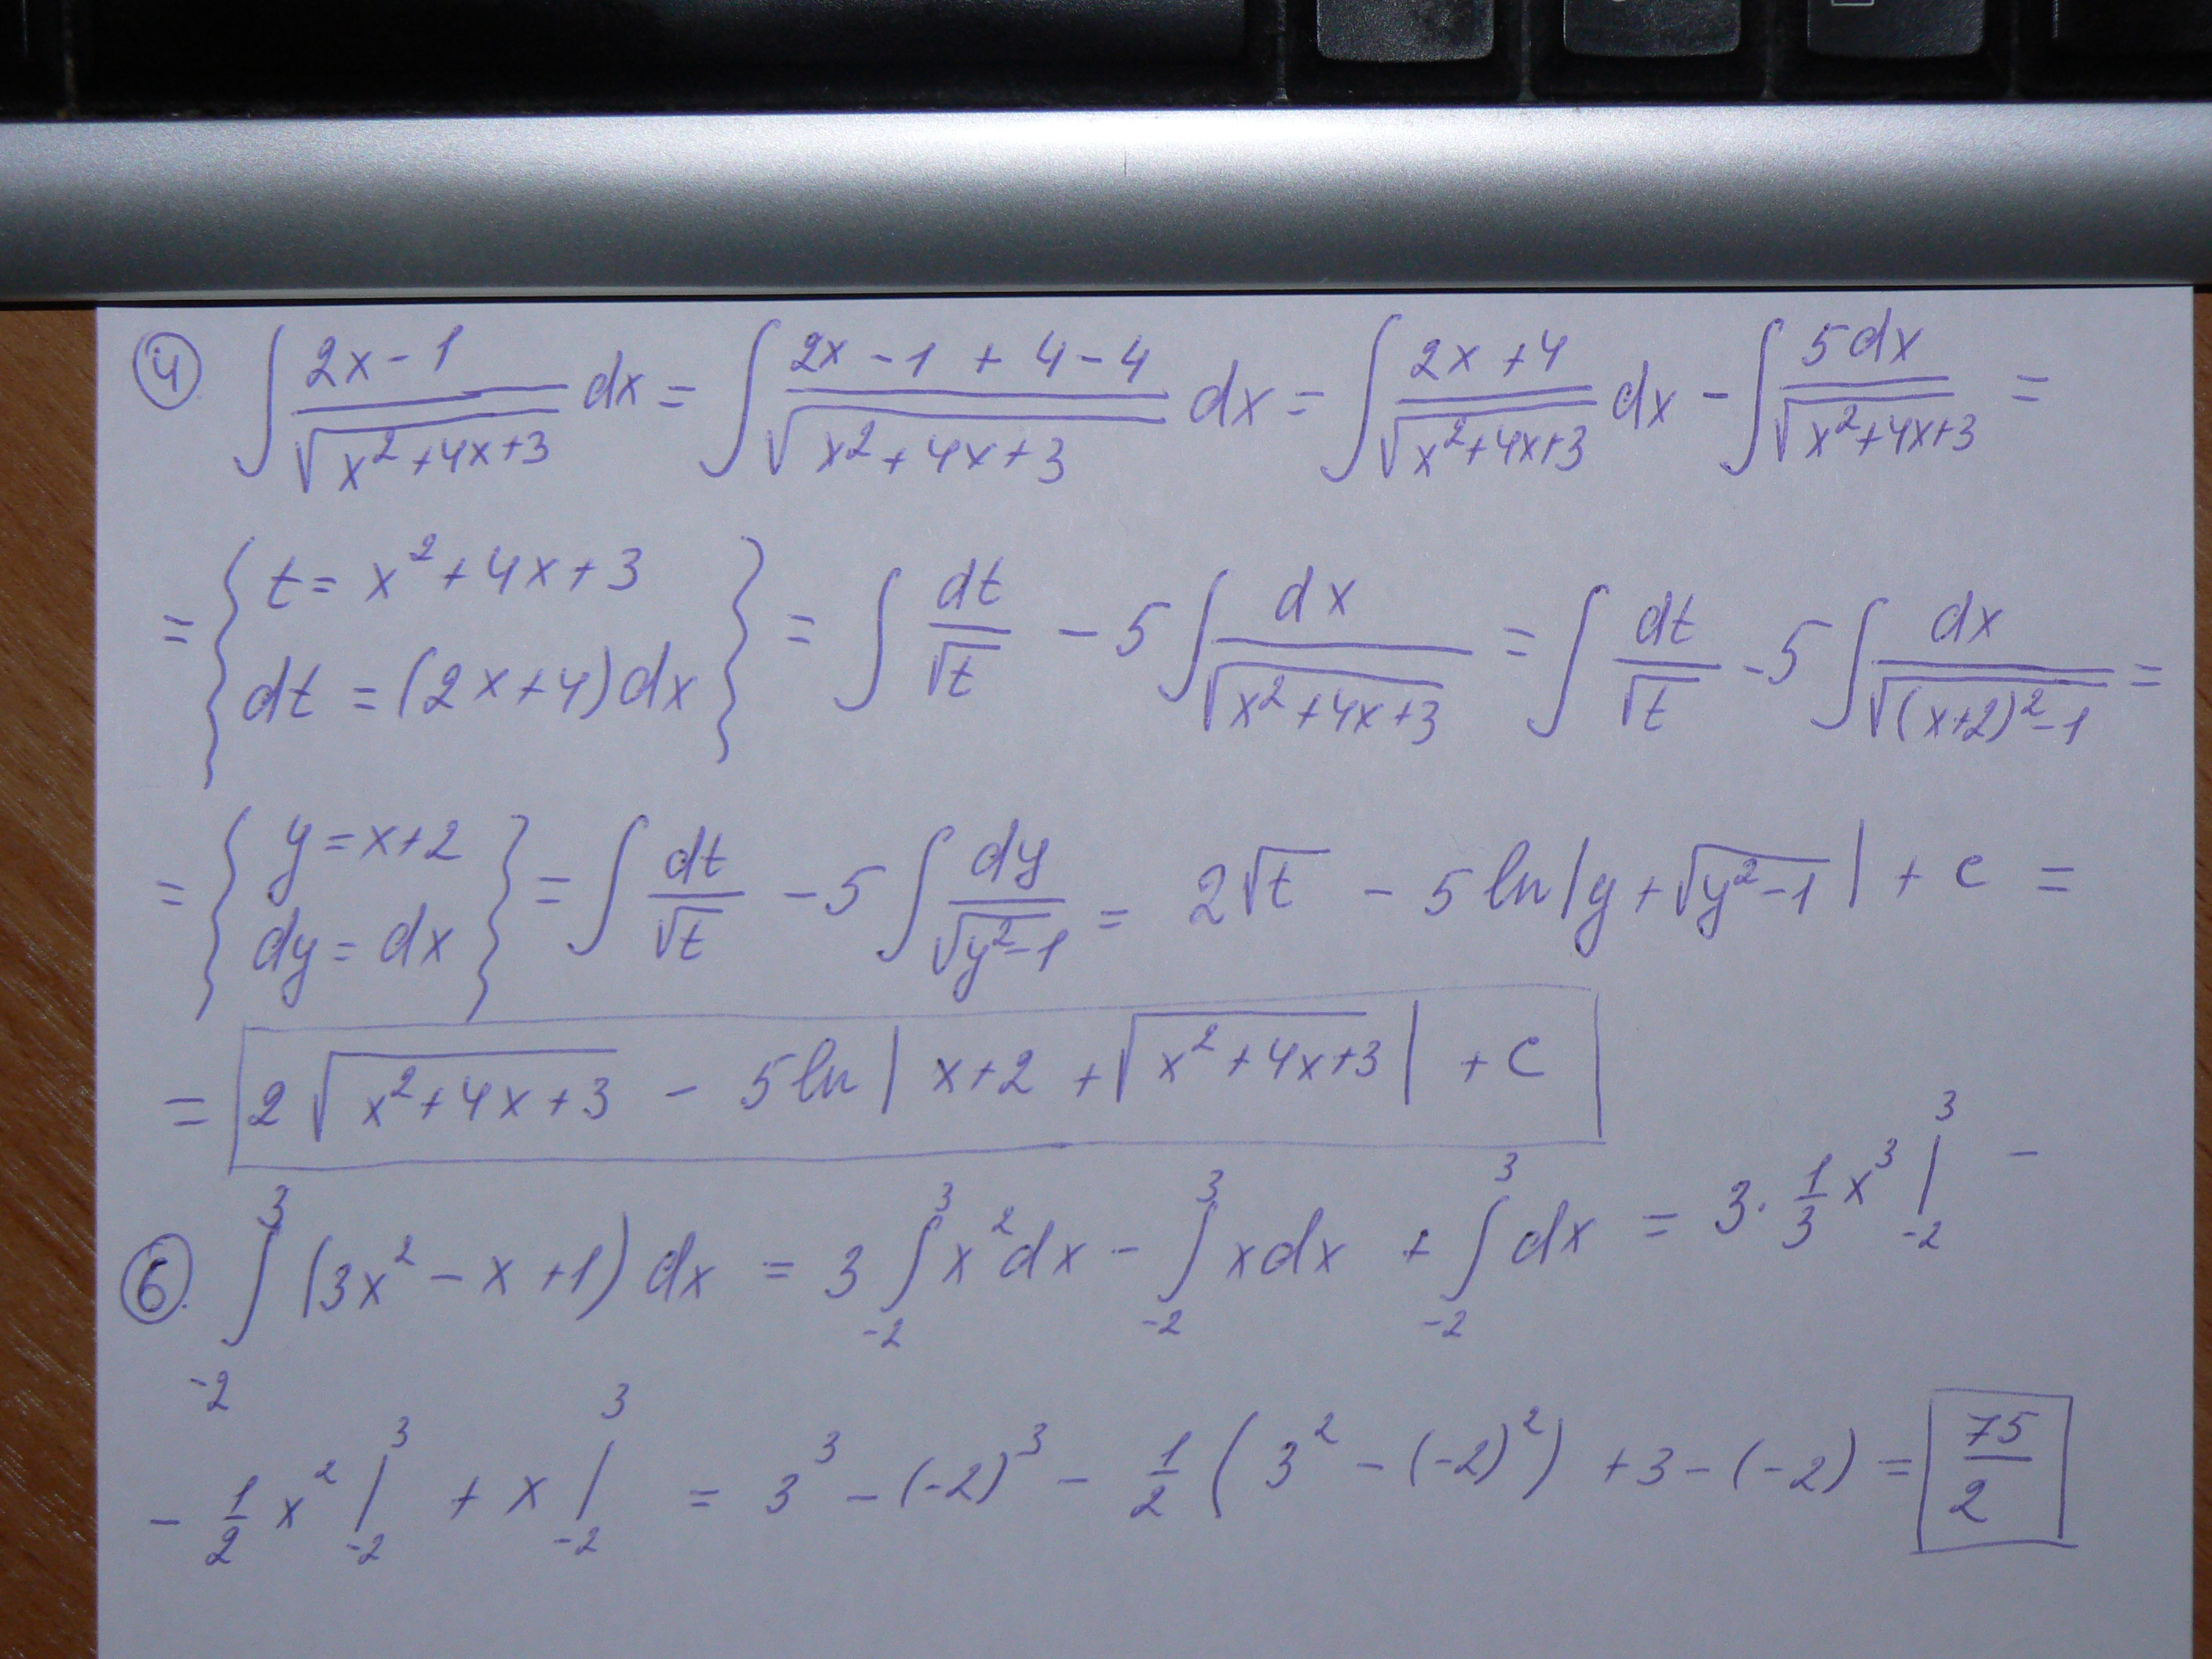 ④ ∫ (2x-1)/√(x²+4x+3) dx = ∫ (2x-1+4-4)/√(x²+4x+3) dx = ∫ (2x+4)/√(x²+4x+3) dx - ∫ 5dx/√(x²+4x+3) =
= { t = x²+4x+3 ; dt = (2x+4)dx } = ∫ dt/√t - 5 ∫ dx/√(x²+4x+3) = ∫ dt/√t - 5 ∫ dx/√((x+2)²-1) =
= { y = x+2 ; dy = dx } = ∫ dt/√t - 5 ∫ dy/√(y²-1) = 2√t - 5 ln|y+√(y²-1)| + c =
= 2√(x²+4x+3) - 5 ln|x+2+√(x²+4x+3)| + c
⑥ ∫_{-2}^{3} (3x²-x+1) dx = 3 ∫_{-2}^{3} x²dx - ∫_{-2}^{3} xdx + ∫_{-2}^{3} dx = 3·1/3 x³ |_{-2}^{3} -
- 1/2 x² |_{-2}^{3} + x |_{-2}^{3} = 3³ - (-2)³ - 1/2 (3² - (-2)²) + 3 - (-2) = 75/2